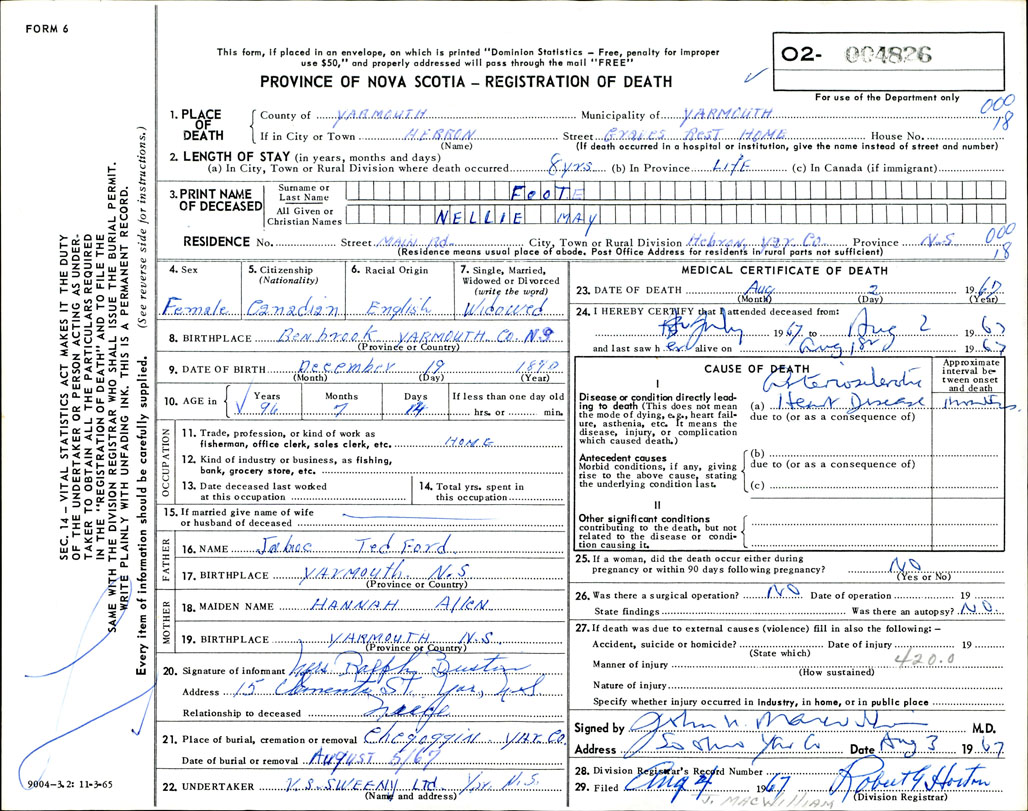 FORM 6
This form, if placed in an envelope, on which is printed "Dominion Statistics – Free, penalty for improper
use $50," and properly addressed will pass through the mail "FREE"
PROVINCE OF NOVA SCOTIA – REGISTRATION OF DEATH
02- 004826
For use of the Department only
000
18
1. PLACE OF DEATH
County of YARMOUTH Municipality of YARMOUTH
If in City or Town HEBRON Street REST HOME House No.
(Name) (If death occurred in a hospital or institution, give the name instead of street and number)
2. LENGTH OF STAY (in years, months and days)
(a) In City, Town or Rural Division where death occurred 8 yrs (b) In Province LIFE (c) In Canada (if immigrant)
3. PRINT NAME OF DECEASED
Surname or Last Name FOOTE
All Given or Christian Names NELLIE MAY
RESIDENCE No. Street MAIN Rd. City, Town or Rural Division Hebron, Yar Co Province N.S
000
18
(Residence means usual place of abode. Post Office Address for residents in rural parts not sufficient)
4. Sex Female
5. Citizenship (Nationality) Canadian
6. Racial Origin English
7. Single, Married, Widowed or Divorced (write the word) Widowed
8. BIRTHPLACE YARMOUTH Co. NS
(Province or Country)
9. DATE OF BIRTH December 19
(Month) (Day) (Year)
10. AGE in Years 96 Months 7 Days 14 If less than one day old
hrs. or min.
OCCUPATION
11. Trade, profession, or kind of work as
fisherman, office clerk, sales clerk, etc. HOME
12. Kind of industry or business, as fishing,
bank, grocery store, etc.
13. Date deceased last worked
at this occupation
14. Total yrs. spent in
this occupation
15. If married give name of wife
or husband of deceased
FATHER
16. NAME Ted Ford
17. BIRTHPLACE YARMOUTH N.S
(Province or Country)
MOTHER
18. MAIDEN NAME HANNAH Allen
19. BIRTHPLACE YARMOUTH N.S.
(Province or Country)
20. Signature of informant Mrs Ralph
Address 15 Clements ST. Yar, N.S
Relationship to deceased
21. Place of burial, cremation or removal Chegoggin YAR Co.
Date of burial or removal AUGUST 5/67
22. UNDERTAKER V.S. SWEENY Ltd. Yar. N.S.
(Name and address)
MEDICAL CERTIFICATE OF DEATH
23. DATE OF DEATH Aug 2 1967
(Month) (Day) (Year)
24. I HEREBY CERTIFY that I attended deceased from:
July 1967 to Aug 2 1967
and last saw her alive on 1967
CAUSE OF DEATH
Approximate interval between onset and death
I
Disease or condition directly leading to death (This does not mean
the mode of dying, e.g., heart failure, asthenia, etc. It means the
disease, injury, or complication
which caused death.)
(a) Arteriosclerotic
Heart Disease
due to (or as a consequence of)
Antecedent causes
Morbid conditions, if any, giving
rise to the above cause, stating
the underlying condition last.
(b)
due to (or as a consequence of)
(c)
II
Other significant conditions
contributing to the death, but not
related to the disease or condition causing it.
25. If a woman, did the death occur either during
pregnancy or within 90 days following pregnancy? NO
(Yes or No)
26. Was there a surgical operation? NO Date of operation 19
State findings Was there an autopsy? NO
27. If death was due to external causes (violence) fill in also the following: –
Accident, suicide or homicide? Date of injury 19
(State which)
420.0
Manner of injury
(How sustained)
Nature of injury
Specify whether injury occurred in industry, in home, or in public place
Signed by John M.D.
Address Yar Co Date Aug 3 1967
28. Division Registrar's Record Number
29. Filed Aug 4 1967 Robert G Horton
(Division Registrar)
J. MACWILLIAM
SEC. 14 – VITAL STATISTICS ACT MAKES IT THE DUTY
OF THE UNDERTAKER OR PERSON ACTING AS UNDER-
TAKER TO OBTAIN ALL THE PARTICULARS REQUIRED
IN THE "REGISTRATION OF DEATH" AND TO FILE THE
SAME WITH THE DIVISION REGISTRAR WHO SHALL ISSUE THE BURIAL PERMIT.
WRITE PLAINLY WITH UNFADING INK. THIS IS A PERMANENT RECORD.
Every item of information should be carefully supplied. (See reverse side for instructions.)
9004-3.2: 11-3-65